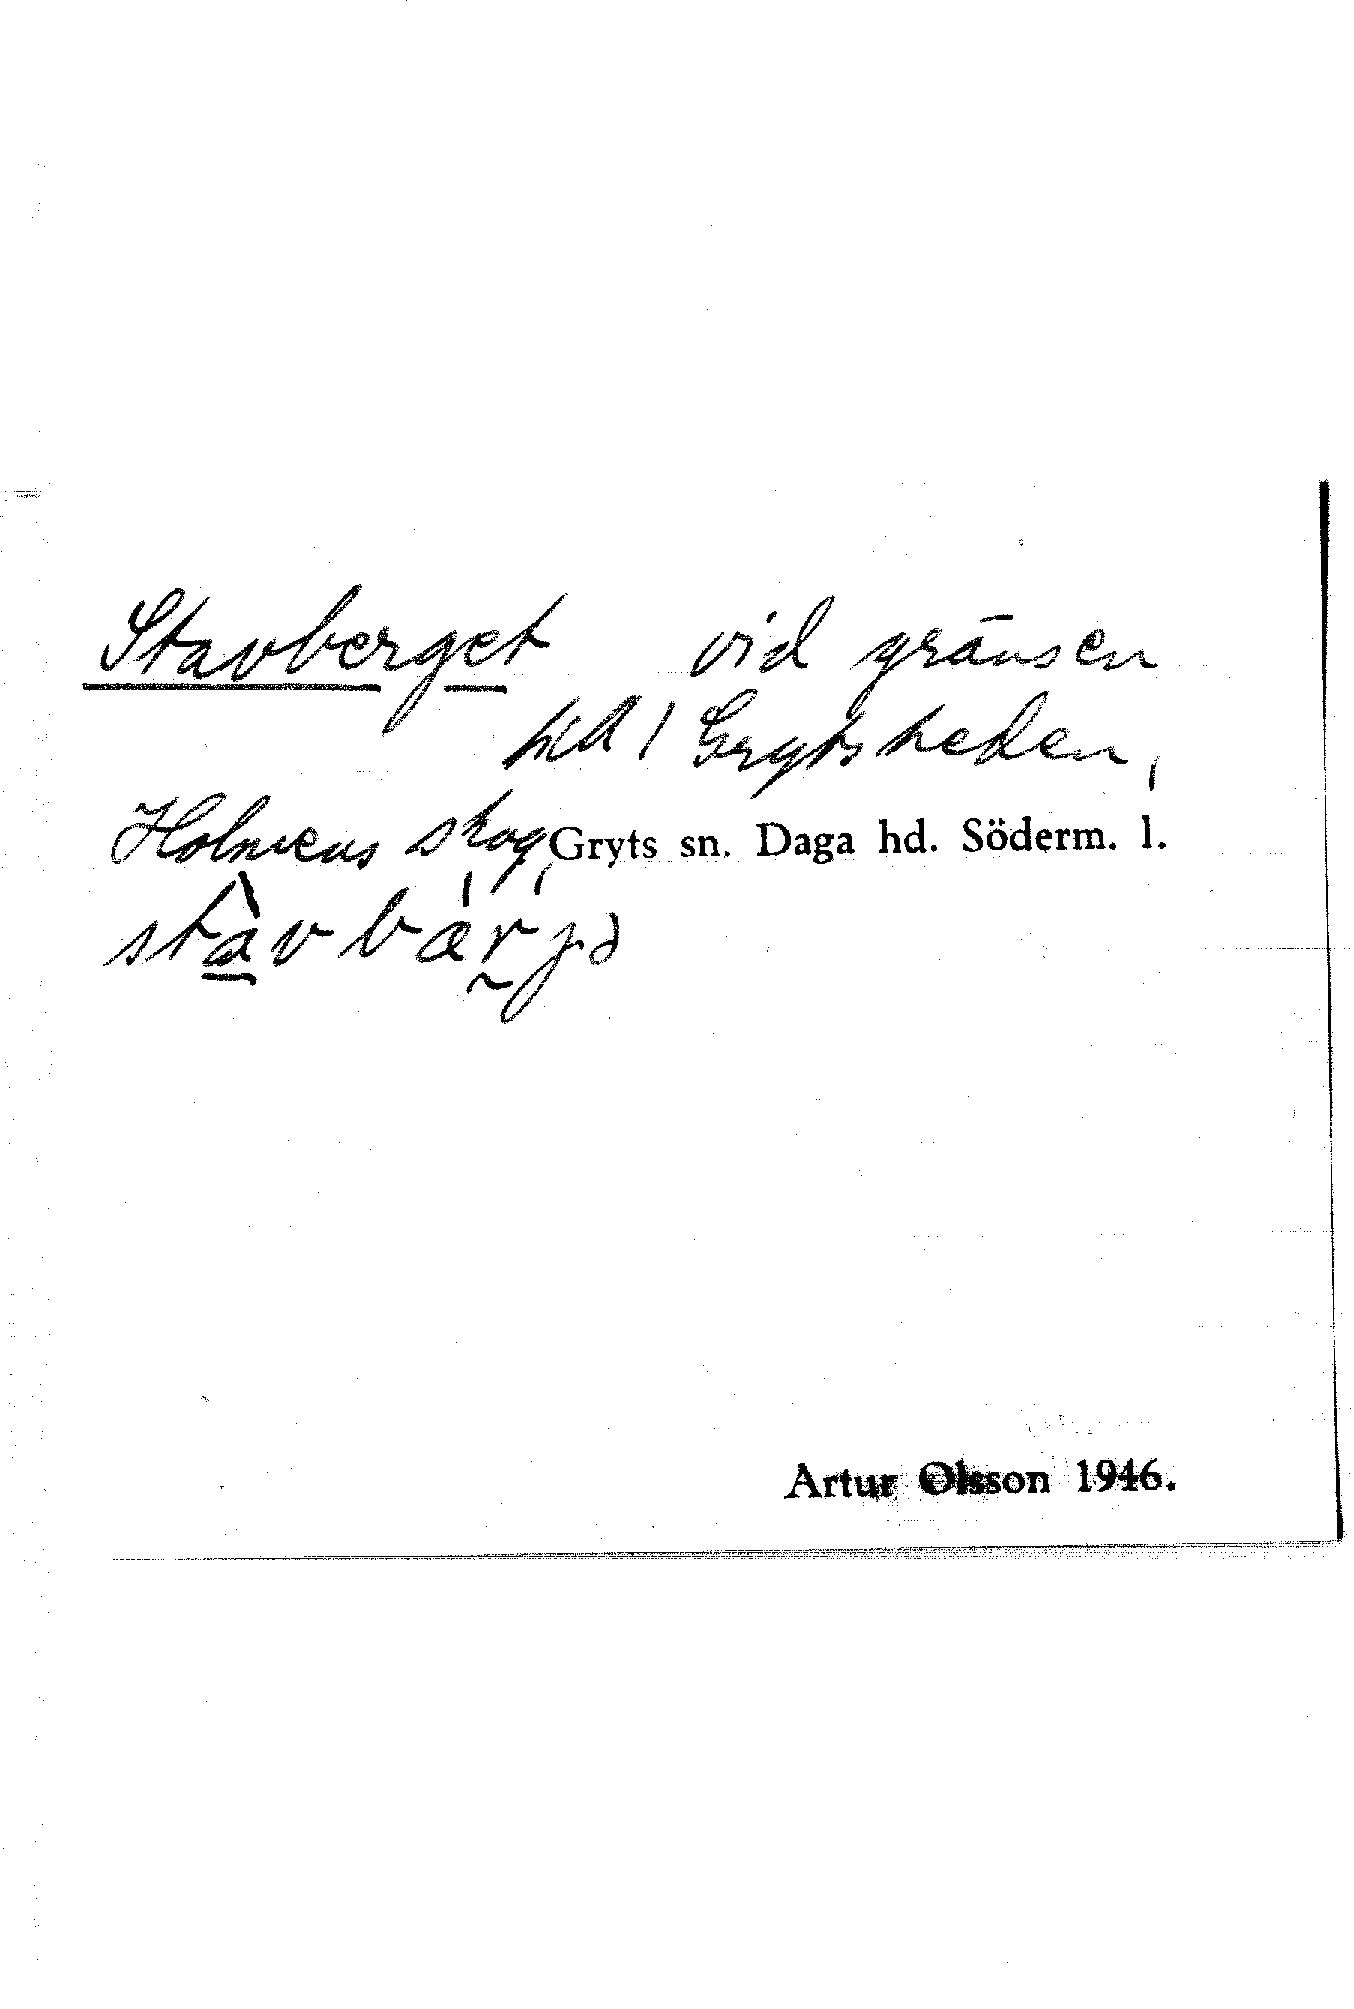 Stavberget vid gränsen
till Grytsheden,
Holmens skog, Gryts sn. Daga hd. Söderm. l.
stàvbærjə
Artur Olsson 1946.